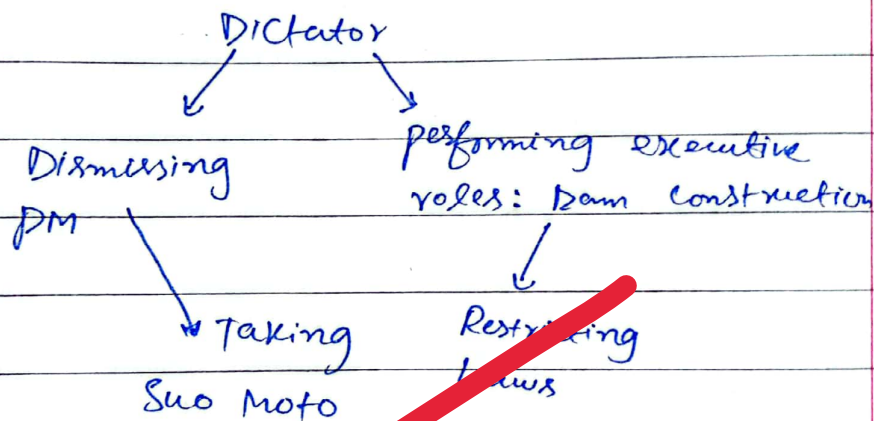 Dictator
Dismissing
PM
performing executive
roles: Dam construction
Taking
Suo Moto